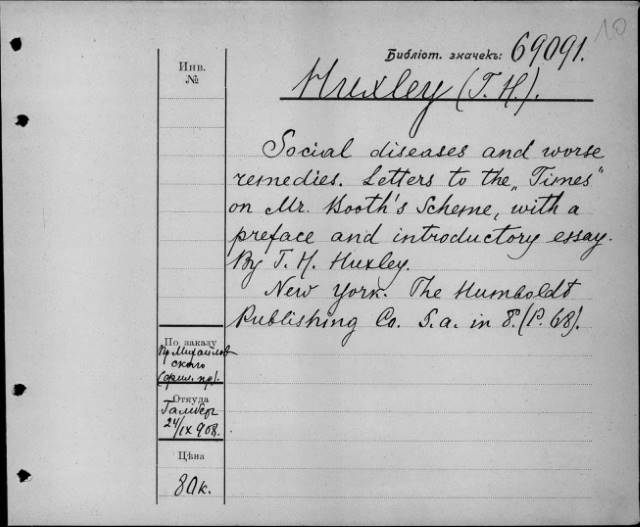 10
Библіот. значекъ: 69091.
Инв.
№
Huxley (T. H.).
Social diseases and worse
remedies. Letters to the „Times"
on Mr. Booth's Scheme, with a
preface and introductory essay.
By T. H. Huxley.
New York. The Humboldt
Publishing Co. S. a. in 8°. (P. 68).
По заказу
Пр. Михайлов
ского
(фил. пр).
Откуда
24/IX 908.
Цѣна
80 к.